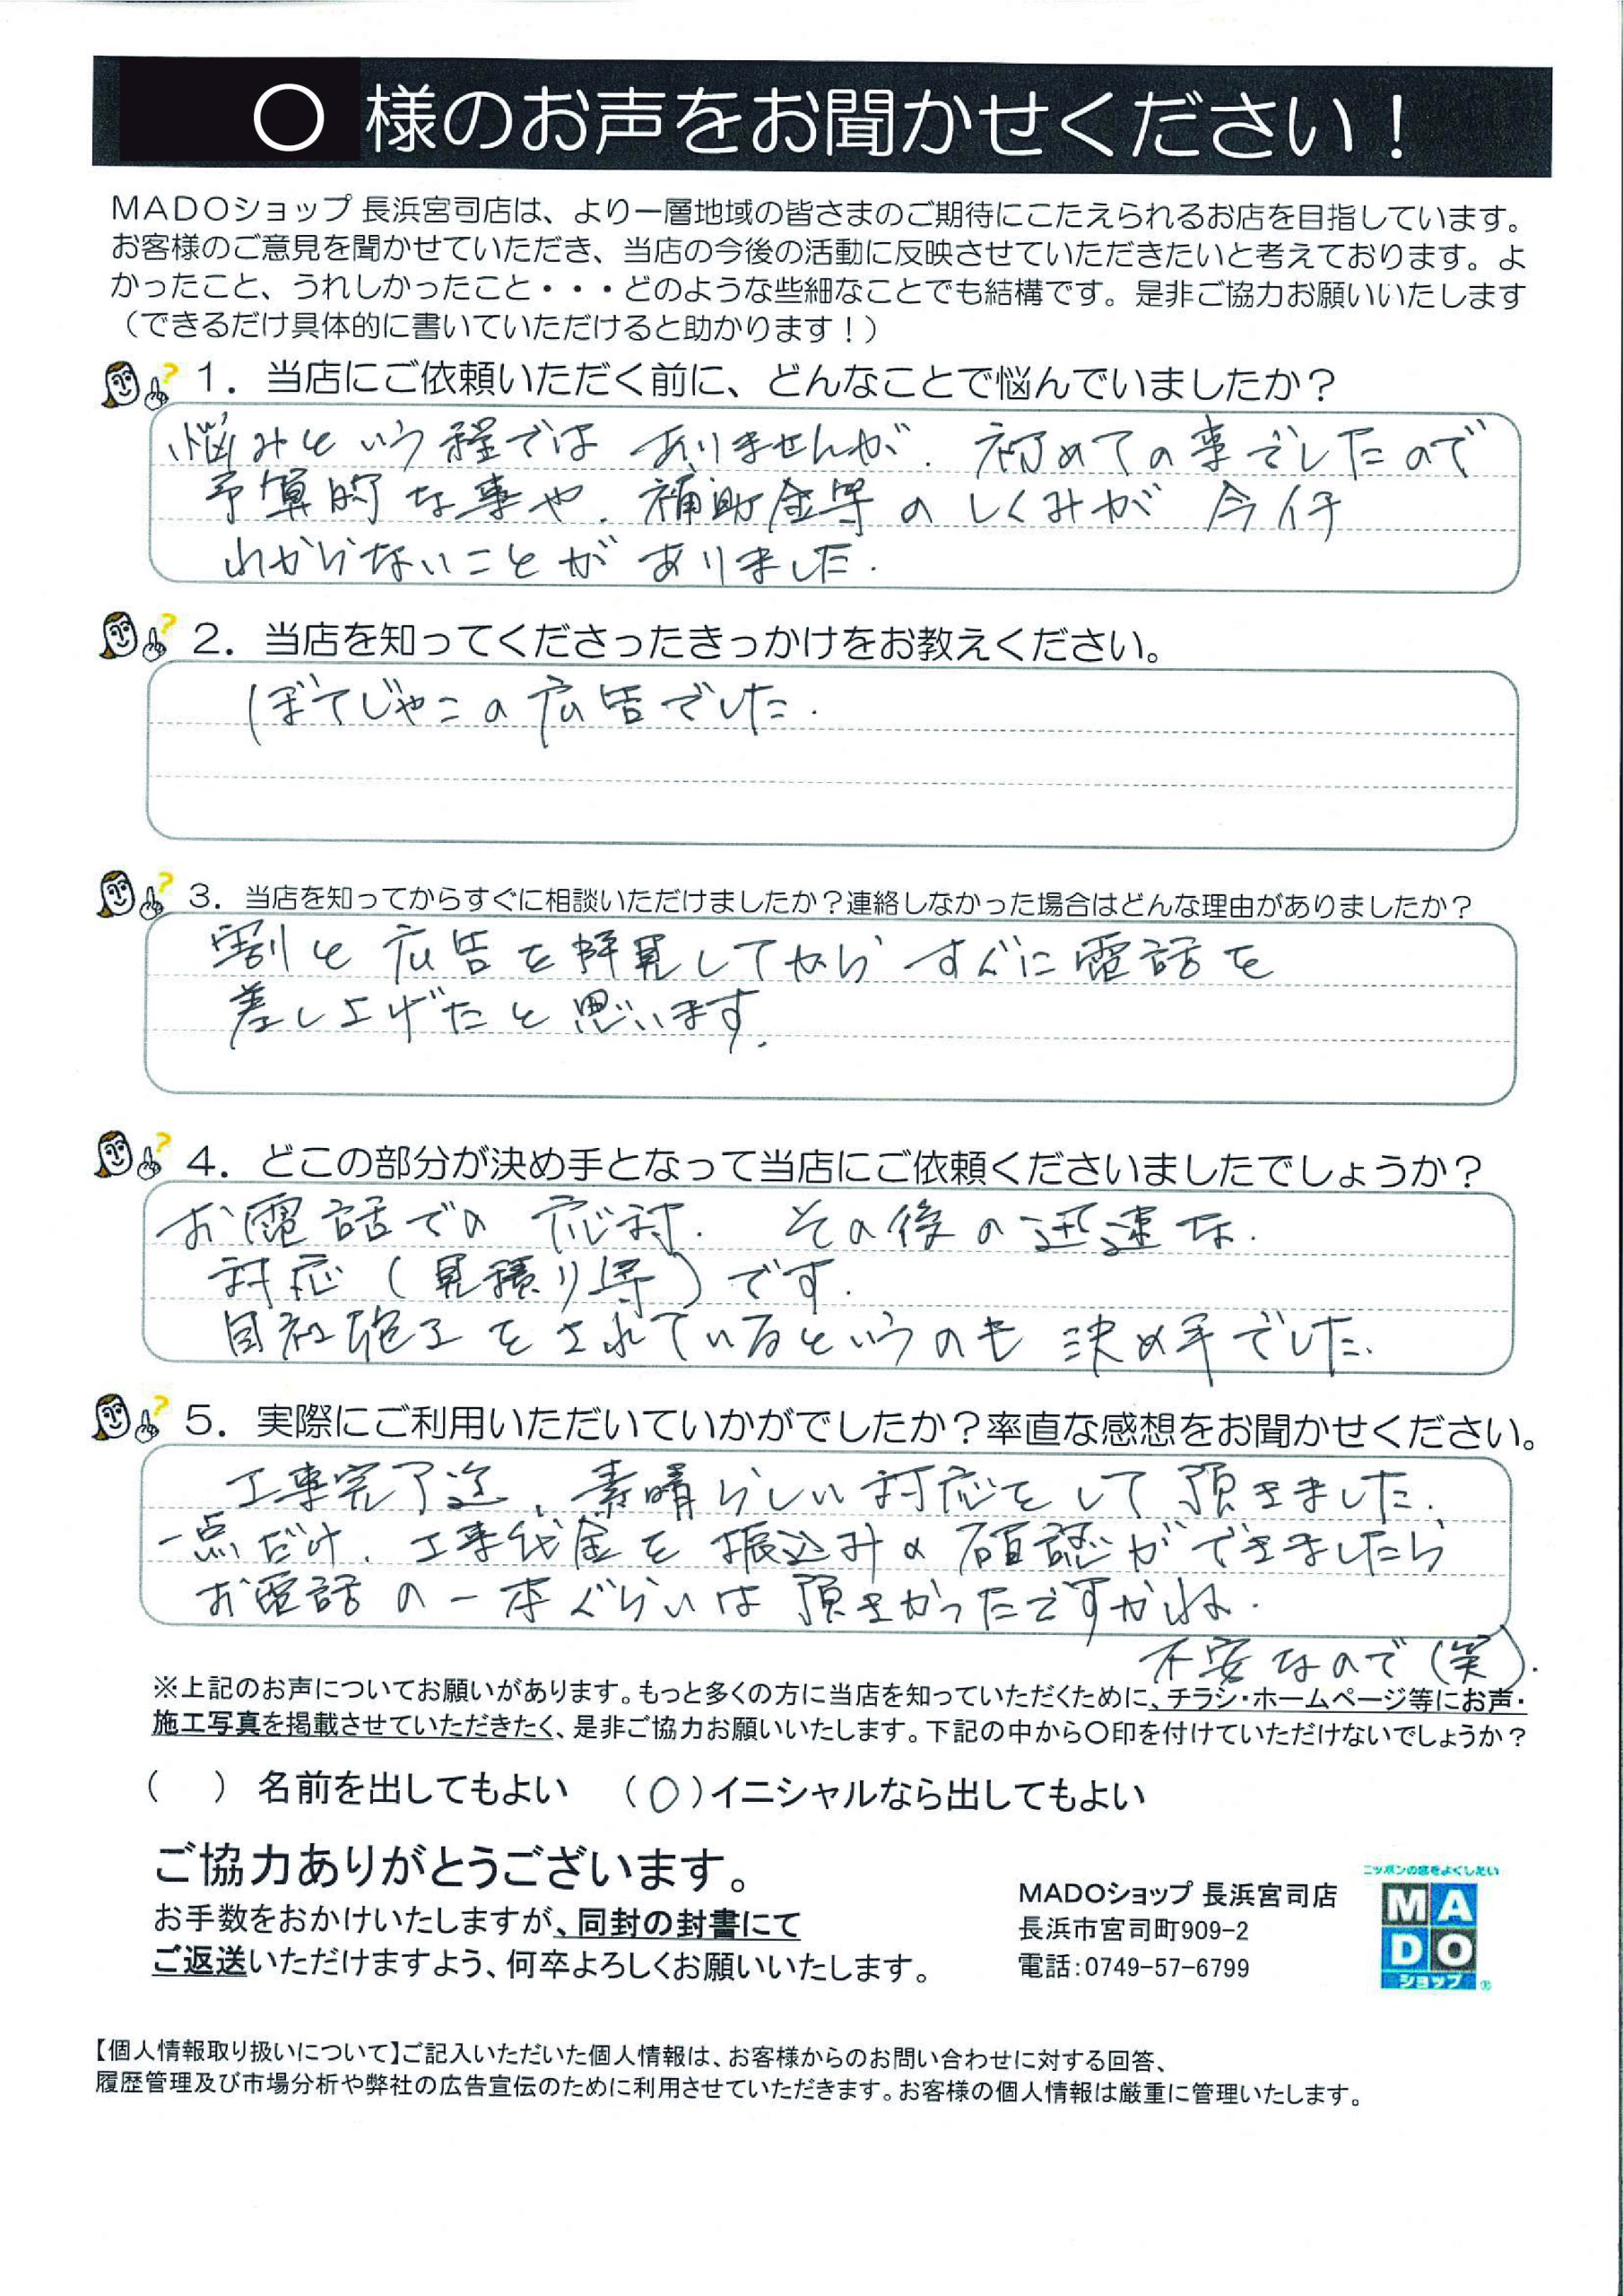 〇様のお声をお聞かせください！
MADOショップ 長浜宮司店は、より一層地域の皆さまのご期待にこたえられるお店を目指しています。
お客様のご意見を聞かせていただき、当店の今後の活動に反映させていただきたいと考えております。よ
かったこと、うれしかったこと・・・どのような些細なことでも結構です。是非ご協力お願いいたします
（できるだけ具体的に書いていただけると助かります！）
1．当店にご依頼いただく前に、どんなことで悩んでいましたか？
悩みという程ではありませんが、初めての事でしたので
予算的な事や、補助金等のしくみが今イチ
わからないことがありました.
2．当店を知ってくださったきっかけをお教えください。
ぼてじゃこの広告でした.
3．当店を知ってからすぐに相談いただけましたか？連絡しなかった場合はどんな理由がありましたか？
割と広告を拝見してからすぐに電話を
差し上げたと思います.
4．どこの部分が決め手となって当店にご依頼くださいましたでしょうか？
お電話での応対. その後の迅速な.
対応(見積り等)です.
自社施工をされているというのも決め手でした.
5．実際にご利用いただいていかがでしたか？率直な感想をお聞かせください。
工事完了迄、素晴らしい対応をして頂きました.
一点だけ、工事代金を振込みの確認ができましたら
お電話の一本ぐらいは頂きたかったですかね.
不安なので(笑).
※上記のお声についてお願いがあります。もっと多くの方に当店を知っていただくために、チラシ・ホームページ等にお声・
施工写真を掲載させていただきたく、是非ご協力お願いいたします。下記の中から〇印を付けていただけないでしょうか？
（　）名前を出してもよい　（〇）イニシャルなら出してもよい
ご協力ありがとうございます。
お手数をおかけいたしますが、同封の封書にて
ご返送いただけますよう、何卒よろしくお願いいたします。
MADOショップ 長浜宮司店
長浜市宮司町909-2
電話：0749-57-6799
ニッポンの窓をよくしたい
MA
DO
ショップ®
【個人情報取り扱いについて】ご記入いただいた個人情報は、お客様からのお問い合わせに対する回答、
履歴管理及び市場分析や弊社の広告宣伝のために利用させていただきます。お客様の個人情報は厳重に管理いたします。